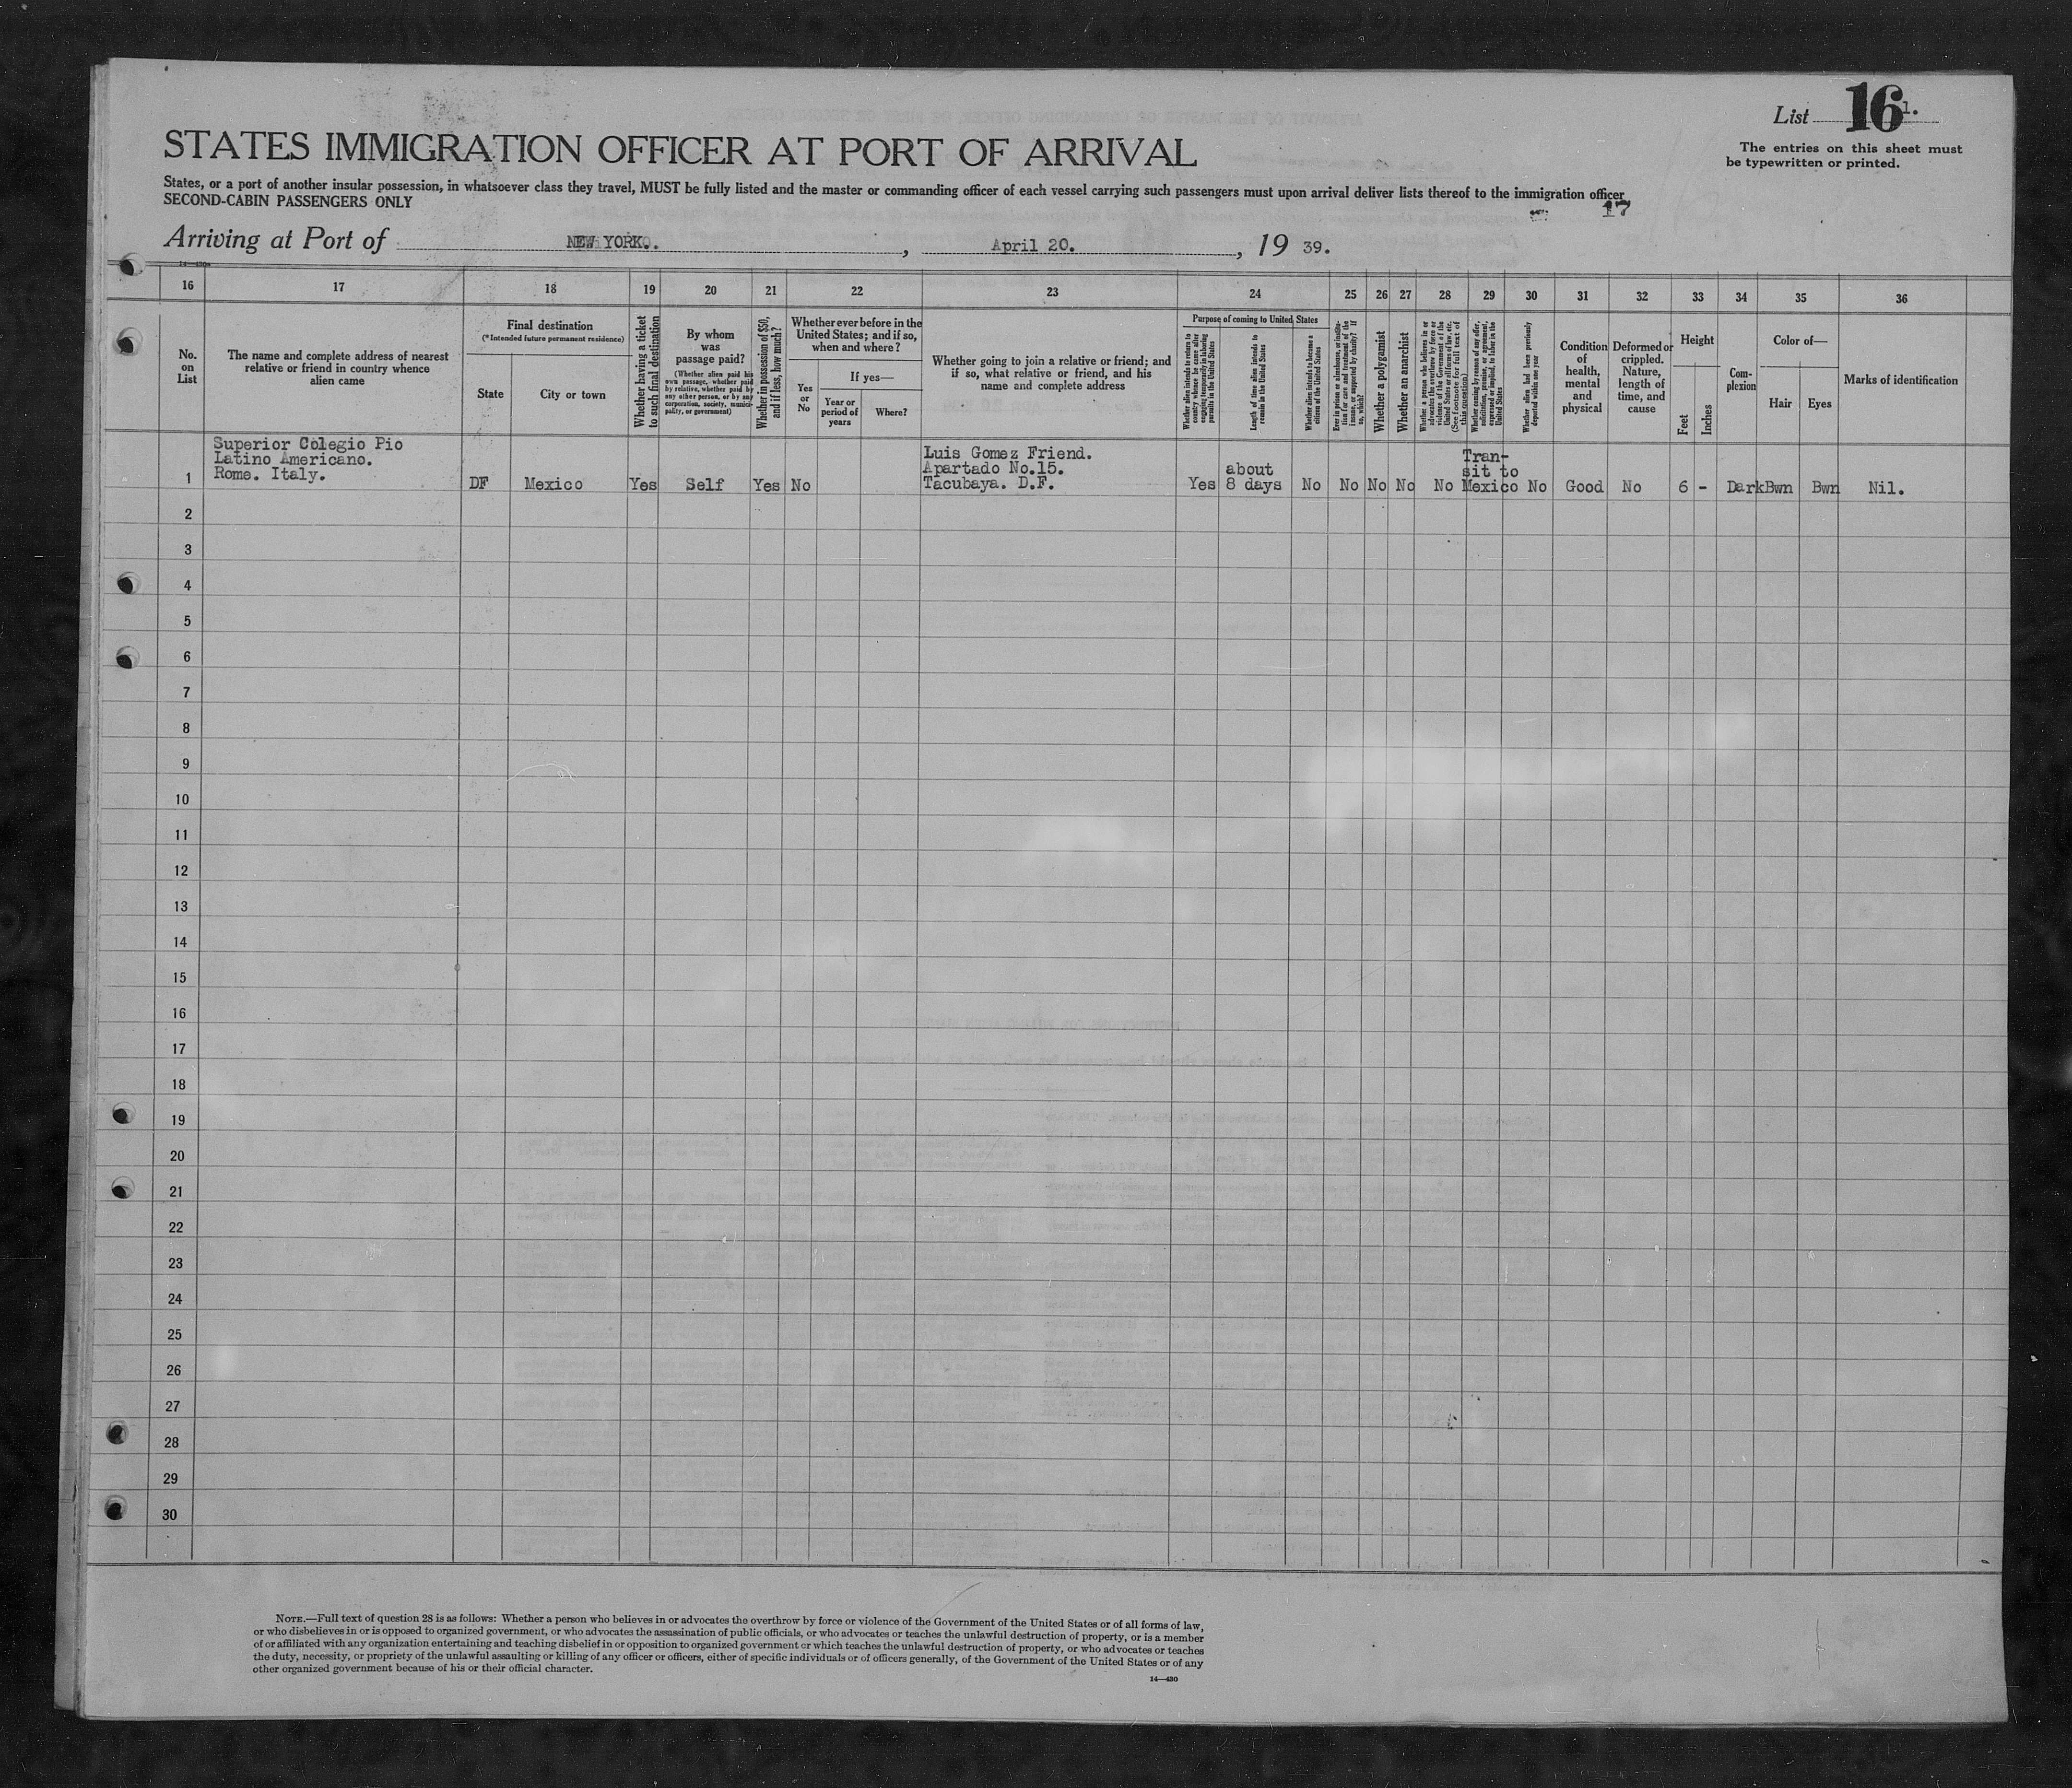 List 16 1.
The entries on this sheet must
be typewritten or printed.
STATES IMMIGRATION OFFICER AT PORT OF ARRIVAL
States, or a port of another insular possession, in whatsoever class they travel, MUST be fully listed and the master or commanding officer of each vessel carrying such passengers must upon arrival deliver lists thereof to the immigration officer
SECOND-CABIN PASSENGERS ONLY
17
Arriving at Port of NEW YORK. , April 20. , 19 39.
14—430a
16 17 18 19 20 21 22 23 24 25 26 27 28 29 30 31 32 33 34 35 36
No.
on
List
The name and complete address of nearest
relative or friend in country whence
alien came
Final destination
(*Intended future permanent residence)
State
City or town
Whether having a ticket
to such final destination
By whom
was
passage paid?
(Whether alien paid his
own passage, whether paid
by relative, whether paid by
any other person, or by any
corporation, society, munici-
pality, or government)
Whether in possession of $50,
and if less, how much?
Whether ever before in the
United States; and if so,
when and where?
Yes
or
No
If yes—
Year or
period of
years
Where?
Whether going to join a relative or friend; and
if so, what relative or friend, and his
name and complete address
Purpose of coming to United States
Whether alien intends to return to
country whence he came after
engaging temporarily in laboring
pursuits in the United States
Length of time alien intends to
remain in the United States
Whether alien intends to become a
citizen of the United States
Ever in prison or almshouse, or institu-
tion for care and treatment of the
insane, or supported by charity? If
so, which?
Whether a polygamist
Whether an anarchist
Whether a person who believes in or
advocates the overthrow by force or
violence of the Government of the
United States or all forms of law, etc.
(See footnote for full text of
this question)
Whether coming by reason of any offer,
solicitation, promise, or agreement,
expressed or implied, to labor in the
United States
Whether alien had been previously
deported within one year
Condition
of
health,
mental
and
physical
Deformed or
crippled.
Nature,
length of
time, and
cause
Height
Feet
Inches
Com-
plexion
Color of—
Hair
Eyes
Marks of identification
Superior Colegio Pio
Latino Americano.
Rome. Italy.
Luis Gomez Friend.
Apartado No.15.
Tacubaya. D.F.
about
8 days
Tran-
sit to
Mexico
1 DF Mexico Yes Self Yes No Yes No No No No No No Good No 6 - Dark Bwn Bwn Nil.
2
3
4
5
6
7
8
9
10
11
12
13
14
15
16
17
18
19
20
21
22
23
24
25
26
27
28
29
30
NOTE.—Full text of question 28 is as follows: Whether a person who believes in or advocates the overthrow by force or violence of the Government of the United States or of all forms of law,
or who disbelieves in or is opposed to organized government, or who advocates the assassination of public officials, or who advocates or teaches the unlawful destruction of property, or is a member
of or affiliated with any organization entertaining and teaching disbelief in or opposition to organized government or which teaches the unlawful destruction of property, or who advocates or teaches
the duty, necessity, or propriety of the unlawful assaulting or killing of any officer or officers, either of specific individuals or of officers generally, of the Government of the United States or of any
other organized government because of his or their official character.
14—430